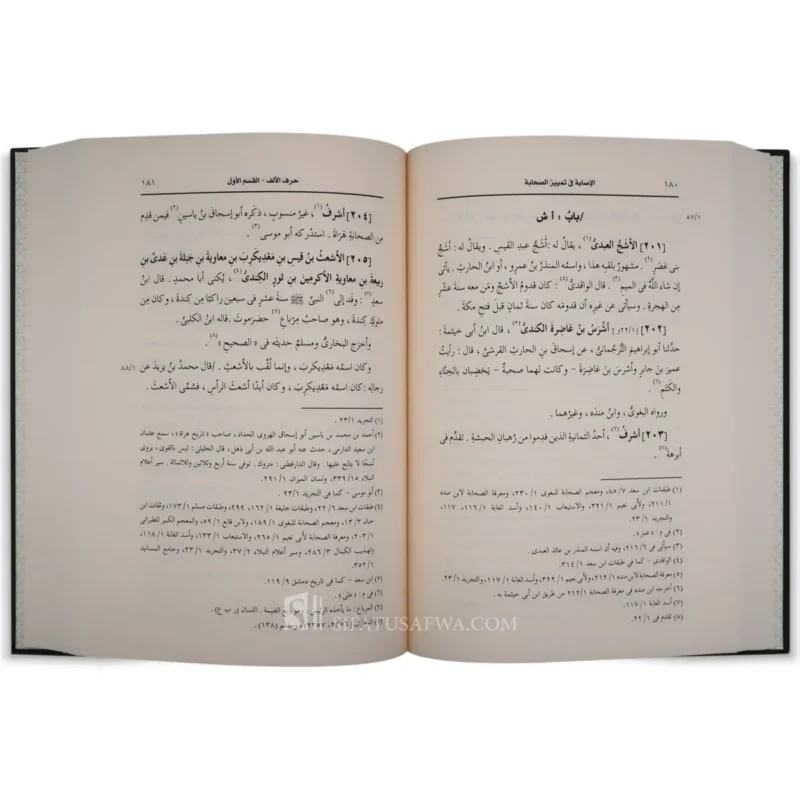 ١٨٠
الإصابة فى تمييز الصحابة
٨٧/١
/بابُ : ا ش
[٢٠١] الأشَجُّ العبدىُّ(١) ، يقالُ له : أشَجُّ عبدِ القيسِ . ويقالُ له : أشَجُّ
بنى عَصَرٍ(٢) . مشهورٌ بلقبِه هذا ، واسمُه المنذرُ بنُ عمرٍو ، أو ابنُ الحارثِ . يأتى
إن شاءَ اللَّهُ فى الميمِ(٣) . قال الواقدىُّ(٤) : كان قدومُ الأشجِّ ومن معه سنةَ عشْرٍ
من الهجرةِ . وسيأتى عن غيرِه أن قدومَه كان سنةَ ثمانٍ قبلَ فتحِ مكةَ .
[٢٠٢] [٢٢/١و] أشْرَسُ بنُ غاضِرةَ الكندىُّ(٥) ، قال ابنُ أبى خيثمةَ :
حدَّثنا أبو إبراهيمَ التَّرجُمانىُّ ، عن إسحاقَ بنِ الحارثِ القرشىِّ ، قال : رأيتُ
عميرَ بنَ جابرٍ وأشرسَ بنَ غاضِرةَ – وكانت لهما صحبةٌ – يَخضِبانِ بالحِنَّاءِ
والكَتَمِ(٦) .
ورواه البغوىُّ ، وابنُ منده ، وغيرُهما .
[٢٠٣] أشرفُ(٧) ، أحدُ الثمانيةِ الذين قدِموا من رُهبانِ الحبشةِ . تقدَّم فى
أبرهةَ(٨) .
(١) طبقات ابن سعد ٨٥/٧، ومعجم الصحابة للبغوى ٢٣٠/١، ومعرفة الصحابة لابن منده
٢١١/١، ولأبى نعيم ٣٢١/١، والاستيعاب ١٤٠/١، وأسد الغابة ١١٦/١، ١١٧،
والتجريد ٢٣/١ .
(٢) فى م : «عمر» .
(٣) سيأتى فى ٢١٦/٦، وفيه أن اسمه المنذر بن عائذ العبدى .
(٤) الواقدى – كما فى طبقات ابن سعد ٣١٤/١ .
(٥) معرفة الصحابة لابن منده ٢١٢/١، ولأبى نعيم ٣٢٢/١، وأسد الغابة ١١٧/١، والتجريد ٢٣/١ .
(٦) أخرجه ابن منده فى معرفة الصحابة ٢١٢/١ من طريق ابن أبى خيثمة به .
(٧) أسد الغابة ١١٧/١ .
(٨) تقدم فى ٢٢/١ .
حرف الألف – القسم الأول
١٨١
[٢٠٤] أشرفُ(١) ، غيرُ منسوبٍ ، ذكَره أبو إسحاقَ بنُ ياسينَ(٢) فيمن قدِم
مِن الصحابةِ هَرَاةَ . استدْركه أبو موسى(٣) .
[٢٠٥] الأشعثُ بنُ قيسِ بنِ مَعْدِيكَرِبَ بنِ معاويةَ بنِ جَبَلةَ بنِ عَدىِّ بنِ
ربيعةَ بنِ معاويةَ الأكرمينَ بنِ ثورٍ الكِندىُّ(٤) ، يُكنى أبا محمدٍ . قال ابنُ
سعدٍ(٥) : وفَد إلى(٦) النبىِّ ﷺ سنةَ عشرٍ فى سبعين راكبًا من كِندةَ ، وكان من
ملوكِ كِندةَ ، وهو صاحبُ مِرْباعِ(٧) حضرَمَوتَ . قاله ابنُ الكلبىِّ .
وأخرَج البخارىُّ ومسلمٌ حديثَه فى « الصحيحِ »(٨) .
وكان اسمُه مَعْدِيكرِبَ ، وإنما لُقِّب بالأشعثِ . /قال محمدُ بنُ يزيدَ عن
٨٨/١
رجالِه: كان اسمُه مَعْدِيكَرِبَ ، وكان أبدًا أشعثَ الرأسِ، فسُمِّى الأشعثَ .
(١) التجريد ٢٣/١ .
(٢) أحمد بن محمد بن ياسين أبو إسحاق الهروى الحداد، صاحب «تاريخ هراة»، سمع عثمان
ابن سعيد الدارمى ، حدث عنه أبو عبد الله بن أبى ذهل، قال الخليلى : ليس بالقوى، يروى
نُسخًا لا يتابع عليها. وقال الدارقطنى : متروك . توفى سنة أربع وثلاثين وثلاثمائة . سير أعلام
النبلاء ٣٣٩/١٥، ولسان الميزان ٢٩١/١ .
(٣) أبو موسى – كما فى التجريد ٢٣/١ .
(٤) طبقات ابن سعد ٢٢/٦، وطبقات خليفة ١٦٢/١، ٢٩٩، وطبقات مسلم ١٧٣/١، وثقات ابن
حبان ١٣/٣، ومعجم الصحابة للبغوى ١٨٩/١، ولابن قانع ٥٩/١، والمعجم الكبير للطبرانى
٢٠٣/١، ومعرفة الصحابة لأبى نعيم ٢٦٥/١، والاستيعاب ١٣٣/١، وأسد الغابة ١١٨/١،
وتهذيب الكمال ٢٨٦/٣، وسير أعلام النبلاء ٣٧/٢، والتجريد ٢٣/١، وجامع المسانيد
٣٥٢/١ .
(٥) ابن سعد – كما فى تاريخ دمشق ١١٩/٩ .
(٦) فى م : «على» .
(٧) المرباع : ما يأخذه الرئيس، وهو ربع الغنيمة . اللسان (ر ب ع) .
(٨) البخارى ، ومسلم (١٣٨) .
SIFATUSAFWA.COM